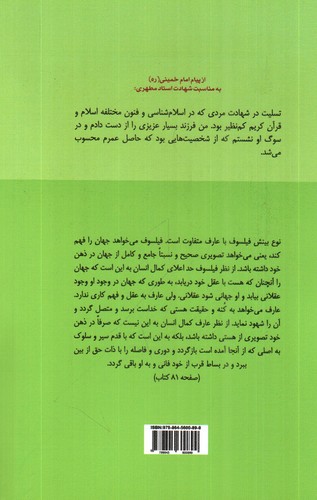 از پیام امام خمینی(ره)
به مناسبت شهادت استاد مطهری:
تسلیت در شهادت مردی که در اسلام‌شناسی و فنون مختلفه اسلام و
قرآن کریم کم‌نظیر بود. من فرزند بسیار عزیزی را از دست دادم و در
سوگ او نشستم که از شخصیت‌هایی بود که حاصل عمرم محسوب
می‌شد.
نوع بینش فیلسوف با عارف متفاوت است. فیلسوف می‌خواهد جهان را فهم
کند، یعنی می‌خواهد تصویری صحیح و نسبتاً جامع و کامل از جهان در ذهن
خود داشته باشد. از نظر فیلسوف حد اعلای کمال انسان به این است که جهان
را آنچنان که هست با عقل خود دریابد، به طوری که جهان در وجود او وجود
عقلانی بیابد و او جهانی شود عقلانی. ولی عارف به عقل و فهم کاری ندارد.
عارف می‌خواهد به کُنه و حقیقت هستی که خداست برسد و متصل گردد و
آن را شهود نماید. از نظر عارف کمال انسان به این نیست که صرفاً در ذهن
خود تصویری از هستی داشته باشد، بلکه به این است که با قدم سیر و سلوک
به اصلی که از آنجا آمده است بازگردد و دوری و فاصله را با ذات حق از بین
ببرد و در بساط قرب از خود فانی و به او باقی گردد.
(صفحه ۸۱ کتاب)